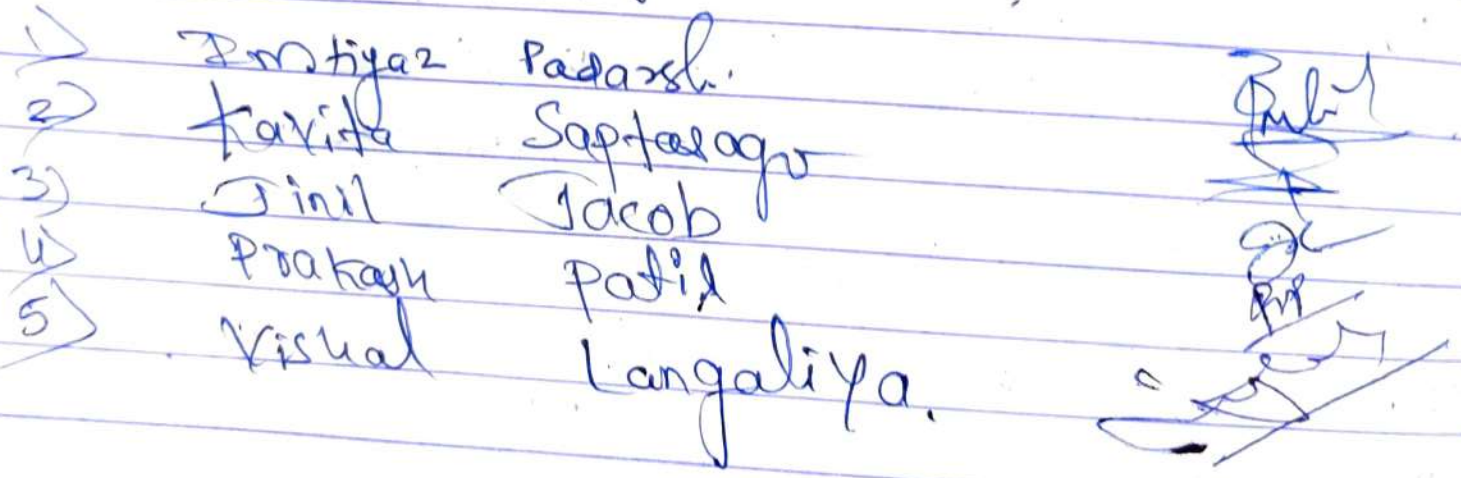 1) Imtiyaz Padarsh.
2) Kavita Saptasagr
3) Jinil Jacob
4) Prakash Patil
5) Vishal Langaliya.